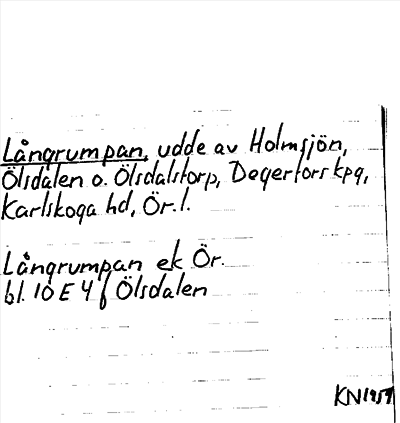 Långrumpan, udde av Holmsjön,
Ölsdalen o. Ölsdalstorp, Degerfors kpg,
Karlskoga hd, Ör. l.
Långrumpan ek Ör.
bl. 10 E 4 f Ölsdalen
KN 1959